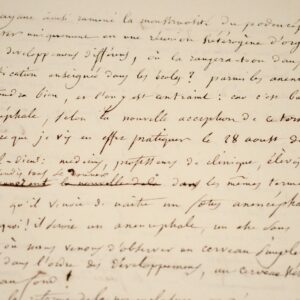 ayant ainsi ramené la monstruosité du podencéph
uniquement en une réunion hétérogène d'org
développemens différens, où la rangera-t-on dans
ication enseignée dans les écoles? parmi les anenc
endra bien, et l'on y est contraint: car c'est là
céphale, selon la nouvelle acception de ce ter
ce que je vis en effet pratiquer le 28 aoust de
médecins, professeurs de clinique, élèves
la nouvelle dans les mêmes termes
qu'il venoit de naître un fœtus anencéphal
que! il seroit un anencéphale, un être sans
où nous venons d'observer un cerveau simple
dans l'ordre des développemens, un cerveau
au fond!